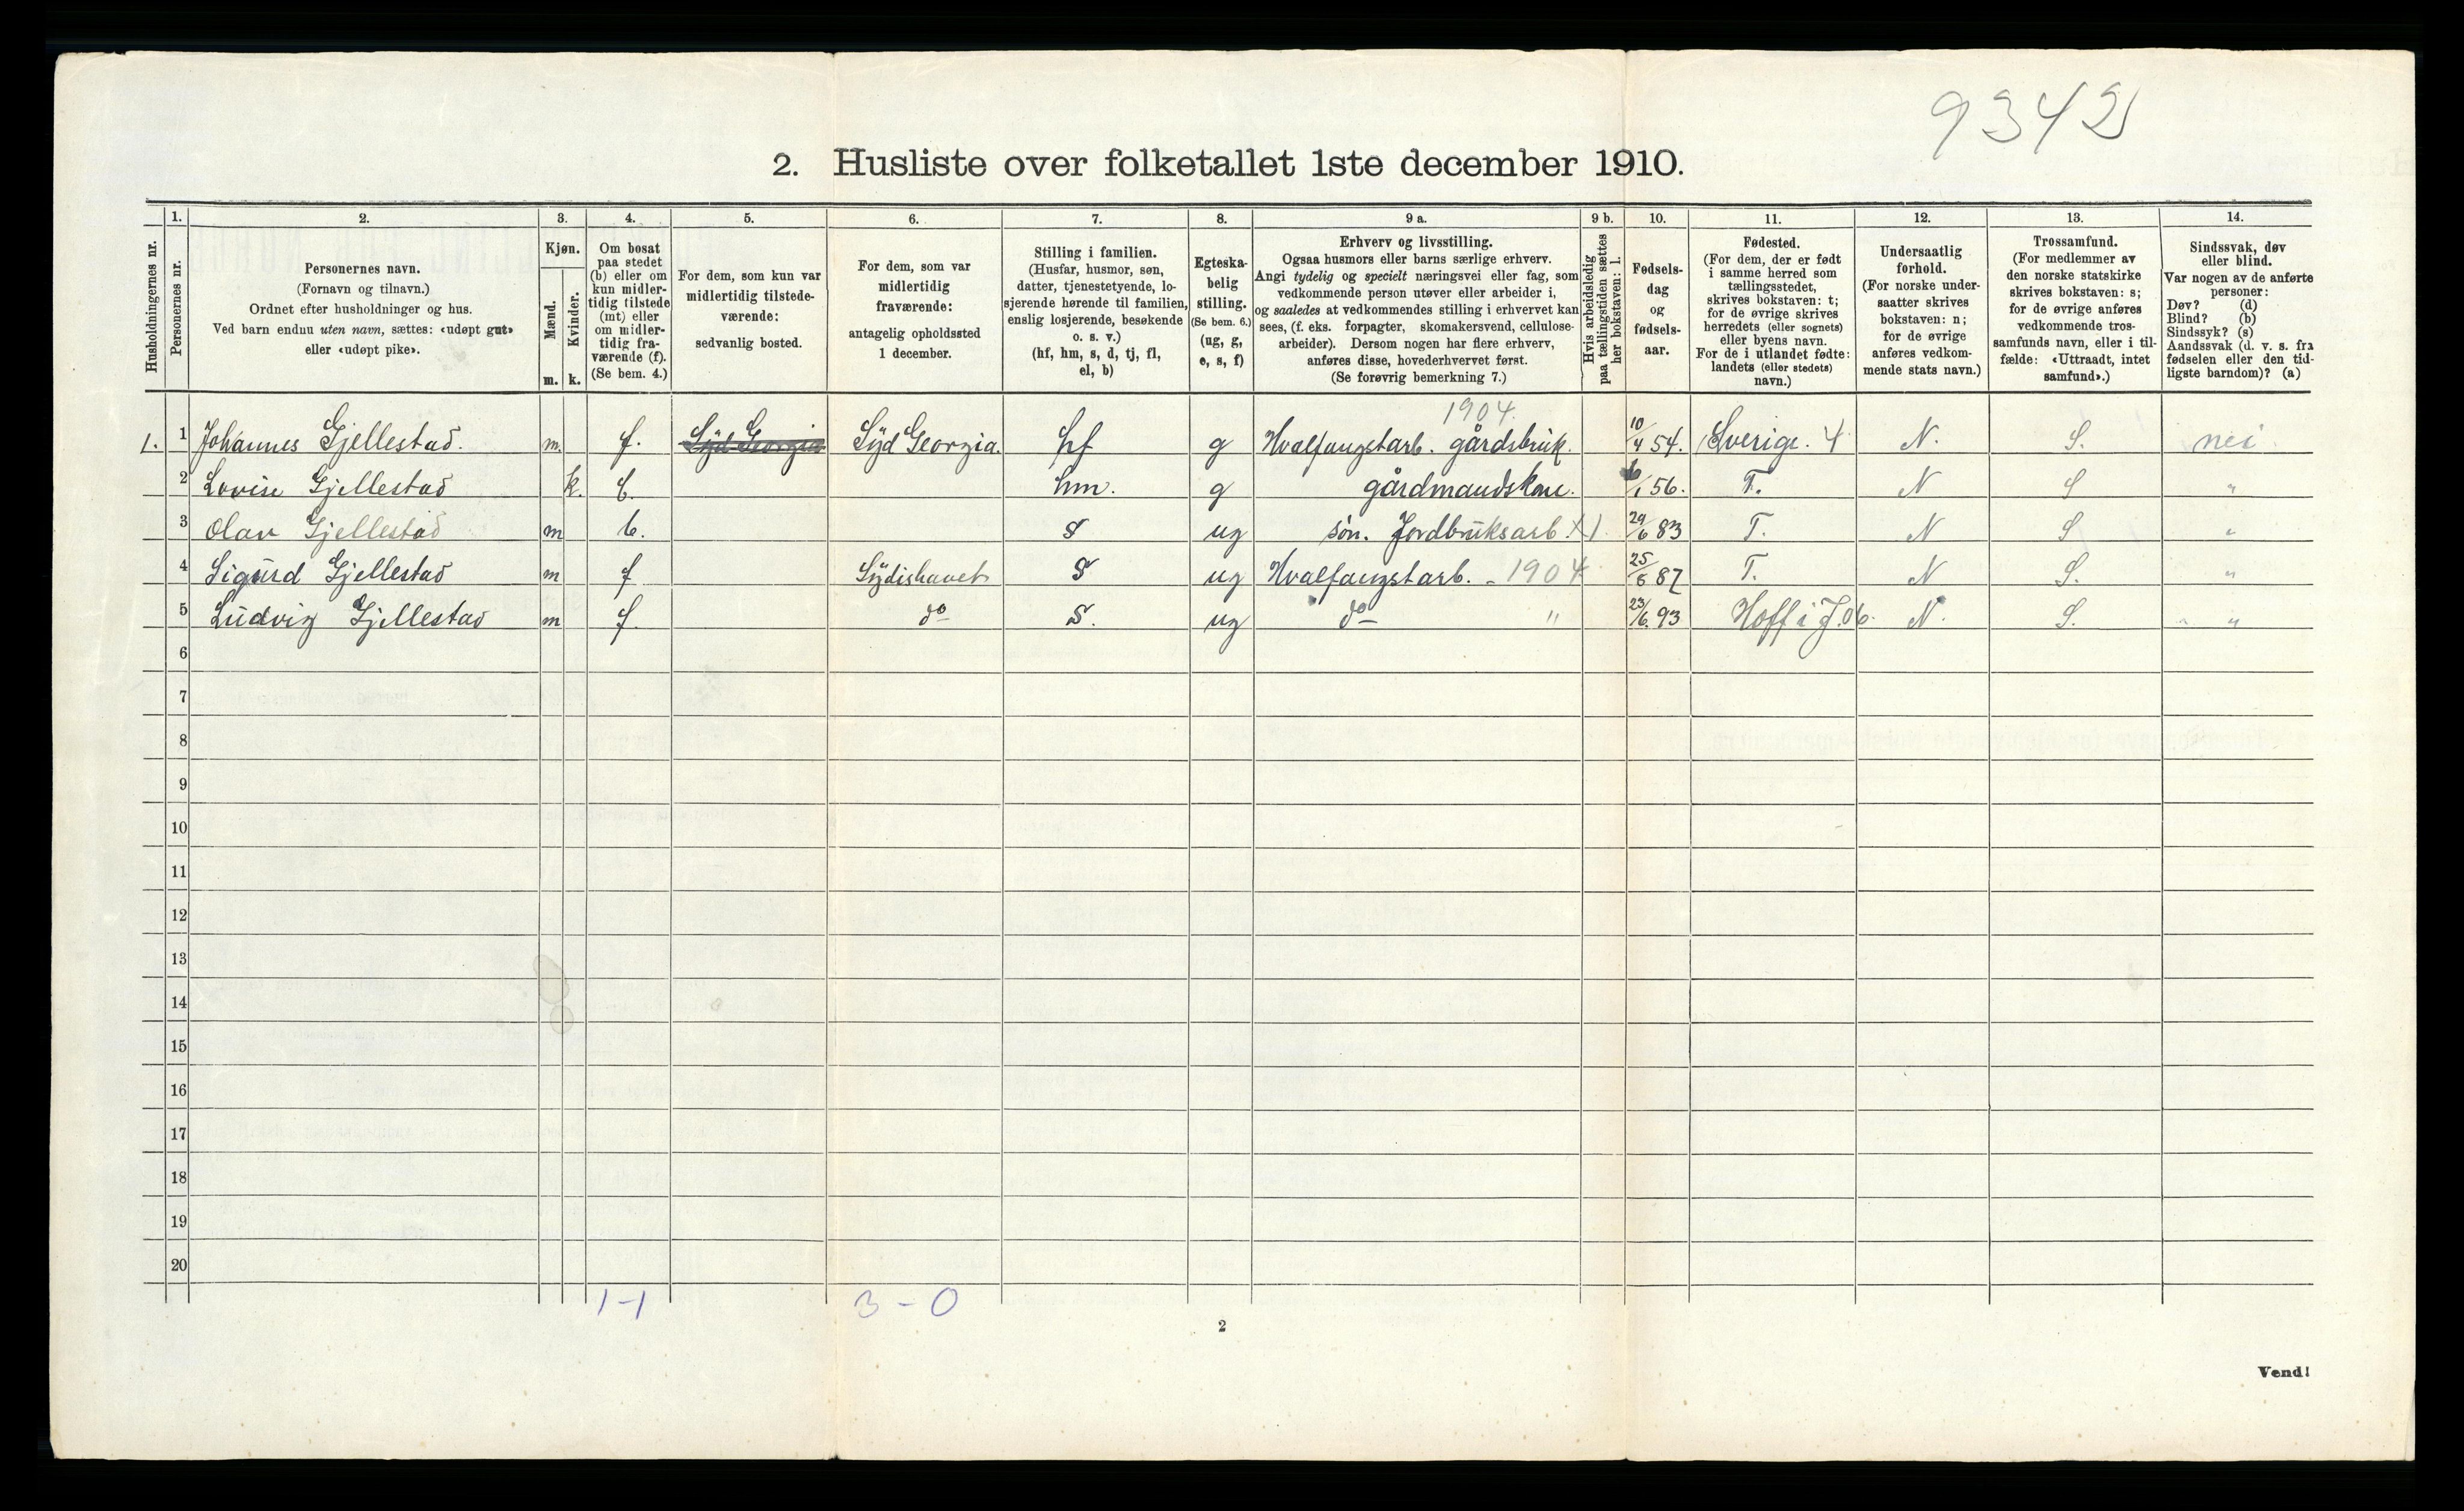 9342
2. Husliste over folketallet 1ste december 1910.
Husholdningernes nr.
1.
Personernes nr.
2.
Personernes navn.
(Fornavn og tilnavn.)
Ordnet efter husholdninger og hus.
Ved barn endnu uten navn, sættes: «udøpt gut»
eller «udøpt pike».
3.
Kjøn.
Mænd.
Kvinder.
m. k.
4.
Om bosat
paa stedet
(b) eller om
kun midler-
tidig tilstede
(mt) eller
om midler-
tidig fra-
værende (f).
(Se bem. 4.)
5.
For dem, som kun var
midlertidig tilstede-
værende:
sedvanlig bosted.
6.
For dem, som var
midlertidig
fraværende:
antagelig opholdssted
1 december.
7.
Stilling i familien.
(Husfar, husmor, søn,
datter, tjenestetyende, lo-
sjerende hørende til familien,
enslig losjerende, besøkende
o. s. v.)
(hf, hm, s, d, tj, fl,
el, b)
8.
Egteska-
belig
stilling.
(Se bem. 6.)
(ug, g,
e, s, f)
9 a.
Erhverv og livsstilling.
Ogsaa husmors eller barns særlige erhverv.
Angi tydelig og specielt næringsvei eller fag, som
vedkommende person utøver eller arbeider i,
og saaledes at vedkommendes stilling i erhvervet kan
sees, (f. eks. forpagter, skomakersvend, cellulose-
arbeider). Dersom nogen har flere erhverv,
anføres disse, hovederhvervet først.
(Se forøvrig bemerkning 7.)
9 b.
Hvis arbeidsledig
paa tællingstiden sættes
her bokstaven: l.
10.
Fødsels-
dag
og
fødsels-
aar.
11.
Fødested.
(For dem, der er født
i samme herred som
tællingsstedet,
skrives bokstaven: t;
for de øvrige skrives
herredets (eller sognets)
eller byens navn.
For de i utlandet fødte:
landets (eller stedets)
navn.)
12.
Undersaatlig
forhold.
(For norske under-
saatter skrives
bokstaven: n;
for de øvrige
anføres vedkom-
mende stats navn.)
13.
Trossamfund.
(For medlemmer av
den norske statskirke
skrives bokstaven: s;
for de øvrige anføres
vedkommende tros-
samfunds navn, eller i til-
fælde: «Uttraadt, intet
samfund».)
14.
Sindssvak, døv
eller blind.
Var nogen av de anførte
personer:
Døv? (d)
Blind? (b)
Sindssyk? (s)
Aandssvak (d. v. s. fra
fødselen eller den tid-
ligste barndom)? (a)
1904.
1. 1 Johannes Gjellestad. m. f. Syd Georgia Syd Georgia. hf g Hvalfangstarb. gårdsbruk. 10/4 54. Sverige. 4 N. S. nei
2 Lovise Gjellestad k. b. hm. g gårdmandskone. /1 56. T. N S "
3 Olav Gjellestad m b. S ug søn. Jordbruksarb. 29/6 83 T. N S "
4 Sigurd Gjellestad m f Sydishavet S ug Hvalfangstarb. - 1904 25/5 87 T. N S. "
5 Ludvig Gjellestad m f. do S. ug do " 23/6. 93 Hoff i J. 06. N. S. " "
6
7
8
9
10
11
12
13
14
15
16
17
18
19
20
1-1 3-0
2
Vend!